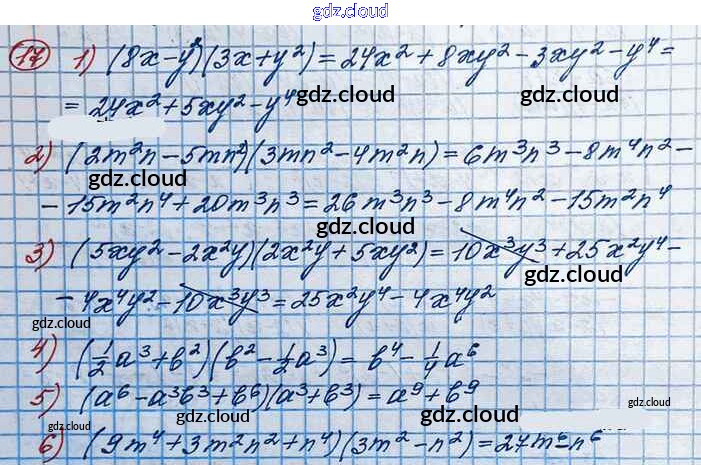 gdz.cloud
17 1) (8x-y²)(3x+y²)=24x²+8xy²-3xy²-y⁴=
=24x²+5xy²-y⁴ gdz.cloud gdz.cloud
2) (2m²n-5mn²)(3mn²-4m²n)=6m³n³-8m⁴n²-
gdz.cloud gdz.cloud
-15m²n⁴+20m³n³=26m³n³-8m⁴n²-15m²n⁴
gdz.cloud
3) (5xy²-2x²y)(2x²y+5xy²)=10x³y³+25x²y⁴-
gdz.cloud
-4x⁴y²-10x³y³=25x²y⁴-4x⁴y²
gdz.cloud gdz.cloud
4) (½a³+b²)(b²-½a³)=b⁴-¼a⁶
5) (a⁶-a³b³+b⁶)(a³+b³)=a⁹+b⁹
gdz.cloud gdz.cloud gdz.cloud gdz.cloud
6) (9m⁴+3m²n²+n⁴)(3m²-n²)=27m⁶-n⁶